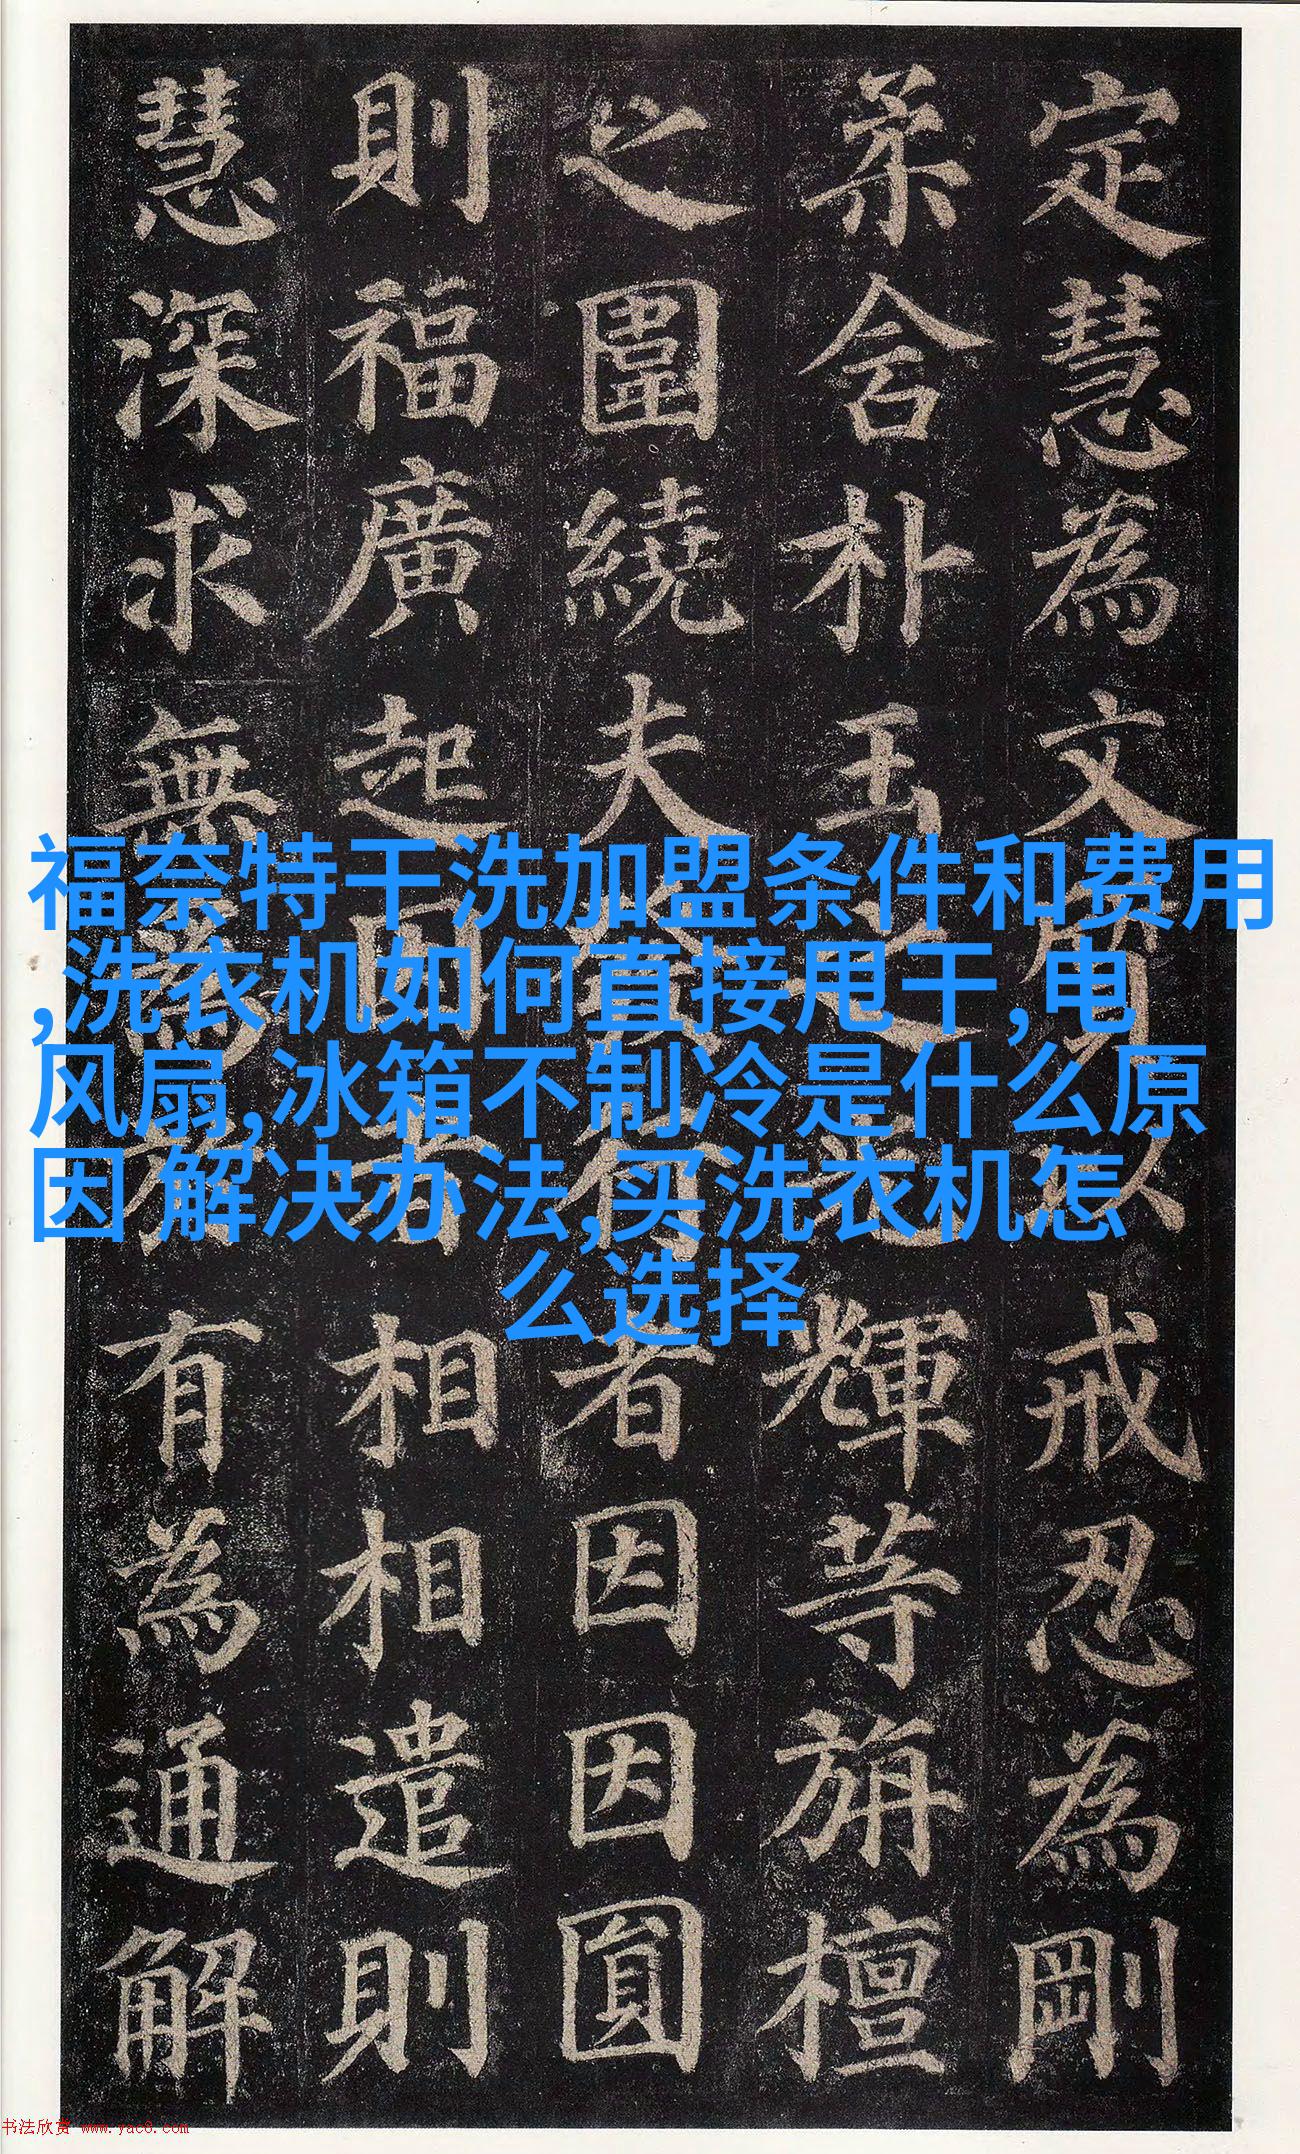 定慧為文質以戒忍為剛
柔含朴玉之光輝等旃檀
之圍繞夫發行者因因圓
則福廣起因者相相遣則
慧深求無為於有為通解
福奈特干洗加盟条件和费用
,洗衣机如何直接甩干,电
风扇,冰箱不制冷是什么原
因 解决办法,买洗衣机怎
么选择
书法欣赏 www.yac8.com